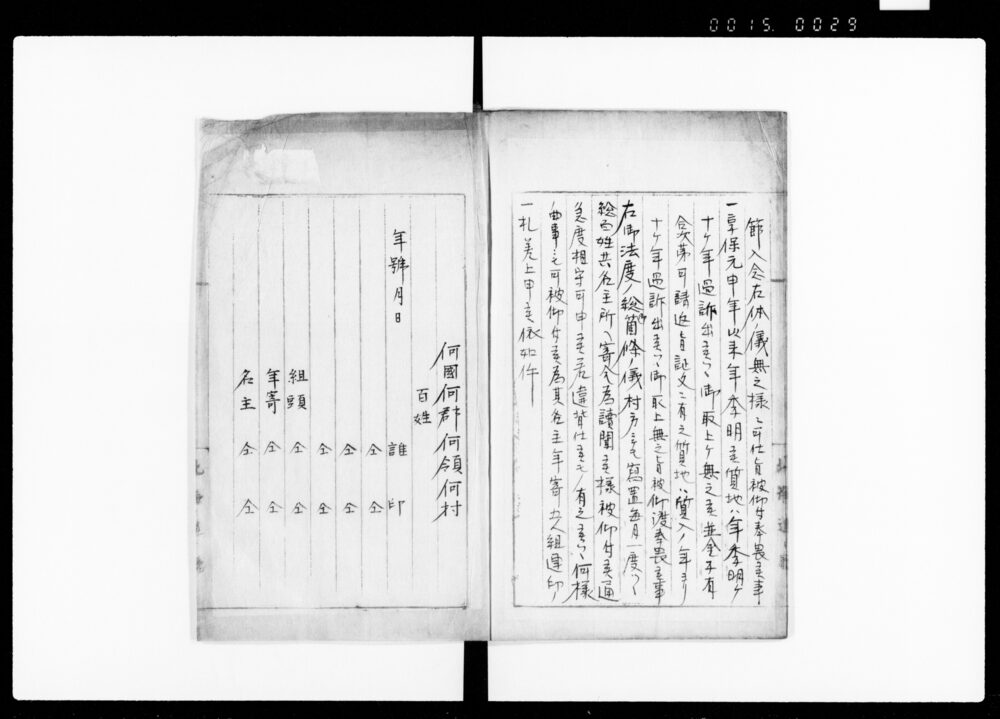 0015. 0029
節入念右体ノ儀無之様ニ可仕旨被仰付奉畏候事
一享保元申年以来年季明候質地ハ年季明ケ
十ヶ年過訴出候ハヽ御取上ケ無之候並金子有
合次第可請返旨証文ニ有之質地ハ質入ノ年ヨリ
十ヶ年過訴出候ハヽ御取上無之旨被仰渡奉畏候事
右御法度ノ総御箇條ノ儀村方ニモ写置毎月一度ツヽ
総百姓共名主所ヘ寄合為読聞候様被仰付候通
急度相守可申候若違背仕候モノ有之候ハヽ何様
曲事ニモ可被仰付候為其名主年寄五人組連印
一札差上申候依如件
年號月日
何國何郡何領何村
百姓 誰 印
仝 仝
仝 仝
仝 仝
組頭 仝 仝
年寄 仝 仝
名主 仝 仝